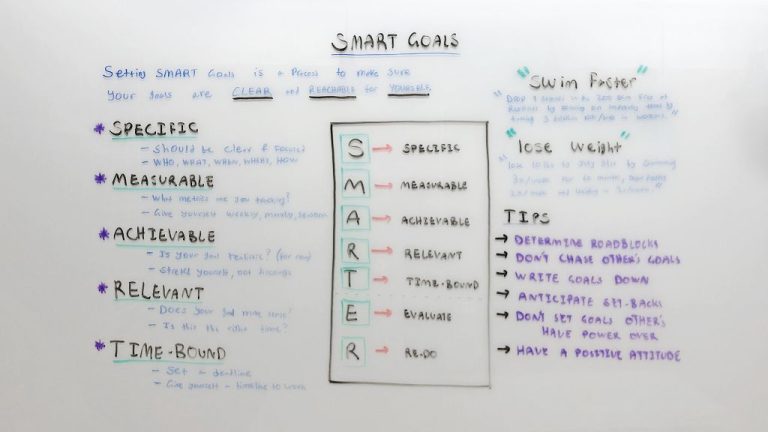 SMART GOALS
Setting SMART Goals is a Process to make sure
your goals are CLEAR and REACHABLE for YOURSELF
* SPECIFIC
- Should be clear & Focused
- WHO, WHAT, WHEN, WHERE, HOW
* MEASURABLE
- What metrics are you tracking?
- Give yourself weekly, monthly,
* ACHIEVABLE
- Is your goal realistic? (for now)
- Stretch yourself, not
* RELEVANT
- Does your goal make sense?
- Is this the right time?
* TIME-BOUND
- Set a deadline
- Give yourself a timeline to work
S → SPECIFIC
M → MEASURABLE
A → ACHIEVABLE
R → RELEVANT
T → TIME-BOUND
E → EVALUATE
R → RE-DO
"Swim Faster"
"DROP in the 200
by
timing
"lose weight"
"lose by July 31st by
3x/week for
TIPS
→ DETERMINE ROADBLOCKS
→ DON'T CHASE OTHER'S GOALS
→ WRITE GOALS DOWN
→ ANTICIPATE SET-BACKS
→ DON'T SET GOALS OTHER'S
HAVE POWER OVER
→ HAVE A POSITIVE ATTITUDE